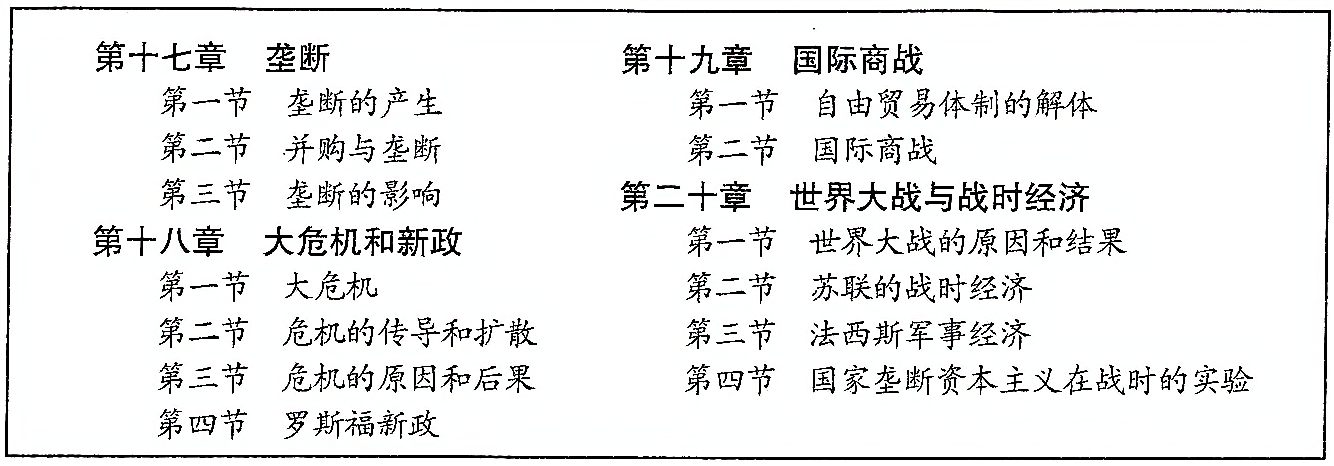 第十七章 垄断
第一节 垄断的产生
第二节 并购与垄断
第三节 垄断的影响
第十八章 大危机和新政
第一节 大危机
第二节 危机的传导和扩散
第三节 危机的原因和后果
第四节 罗斯福新政
第十九章 国际商战
第一节 自由贸易体制的解体
第二节 国际商战
第二十章 世界大战与战时经济
第一节 世界大战的原因和结果
第二节 苏联的战时经济
第三节 法西斯军事经济
第四节 国家垄断资本主义在战时的实验